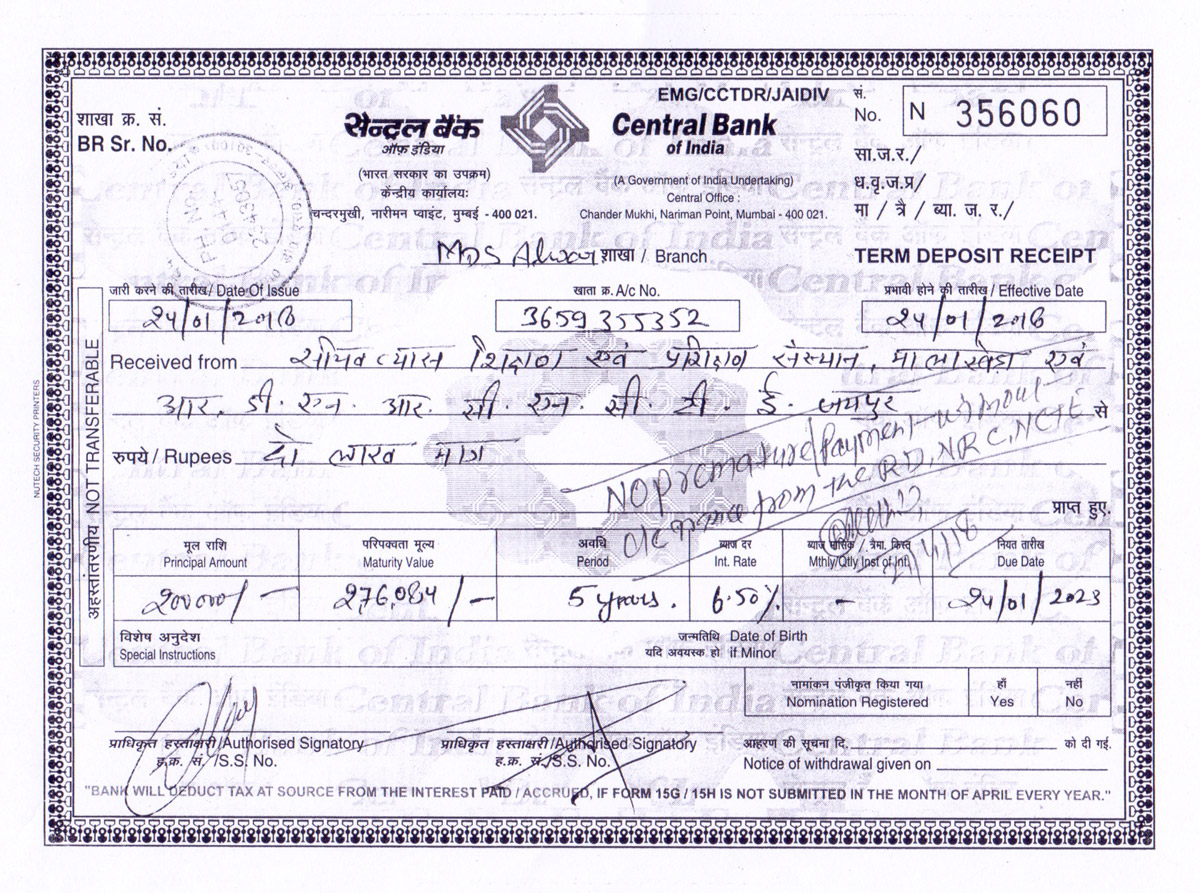 शाखा क्र. सं.
BR Sr. No.
सेन्ट्रल बैंक
ऑफ़ इंडिया
(भारत सरकार का उपक्रम)
केंद्रीय कार्यालयः
चन्दरमुखी, नारीमन प्वाइंट, मुम्बई - 400 021.
Central Bank
of India
(A Government of India Undertaking)
Central Office :
Chander Mukhi, Nariman Point, Mumbai - 400 021.
EMG/CCTDR/JAIDIV
सं.
No. N 356060
सा.ज.र./
ध.वृ.ज.प्र/
मा / त्रै / ब्या. ज. र./
MDS Alwar शाखा / Branch
TERM DEPOSIT RECEIPT
जारी करने की तारीख / Date Of Issue
खाता क्र. A/c No.
प्रभावी होने की तारीख / Effective Date
3659355352
Received from
शिक्षण एवं प्रशिक्षण संस्थान, मालाखेडा एवं
आर. डी. एन. आर. सी. एन. सी. टी. ई. जयपुर से
रुपये / Rupees दो लाख मात्र
NO premature/Payment without
from the RD, NRC, NCTE
प्राप्त हुए.
अहस्तांतरणीय NOT TRANSFERABLE
NUTECH SECURITY PRINTERS
मूल राशि
Principal Amount
परिपक्वता मूल्य
Maturity Value
अवधि
Period
ब्याज दर
Int. Rate
ब्याज मासिक / त्रैमा. किस्त
Mthly/Qtly Inst of Int.
नियत तारीख
Due Date
200000/-
276,084/-
5 years.
6.50%.
-
24/01/2023
विशेष अनुदेश
Special Instructions
जन्मतिथि Date of Birth
यदि अवयस्क हो if Minor
नामांकन पंजीकृत किया गया
Nomination Registered
हाँ
Yes
नहीं
No
प्राधिकृत हस्ताक्षरी /Authorised Signatory
ह.क्र. सं. /S.S. No.
प्राधिकृत हस्ताक्षरी /Authorised Signatory
ह.क्र. सं./S.S. No.
आहरण की सूचना दि. को दी गई.
Notice of withdrawal given on
"BANK WILL DEDUCT TAX AT SOURCE FROM THE INTEREST PAID / ACCRUED, IF FORM 15G / 15H IS NOT SUBMITTED IN THE MONTH OF APRIL EVERY YEAR."